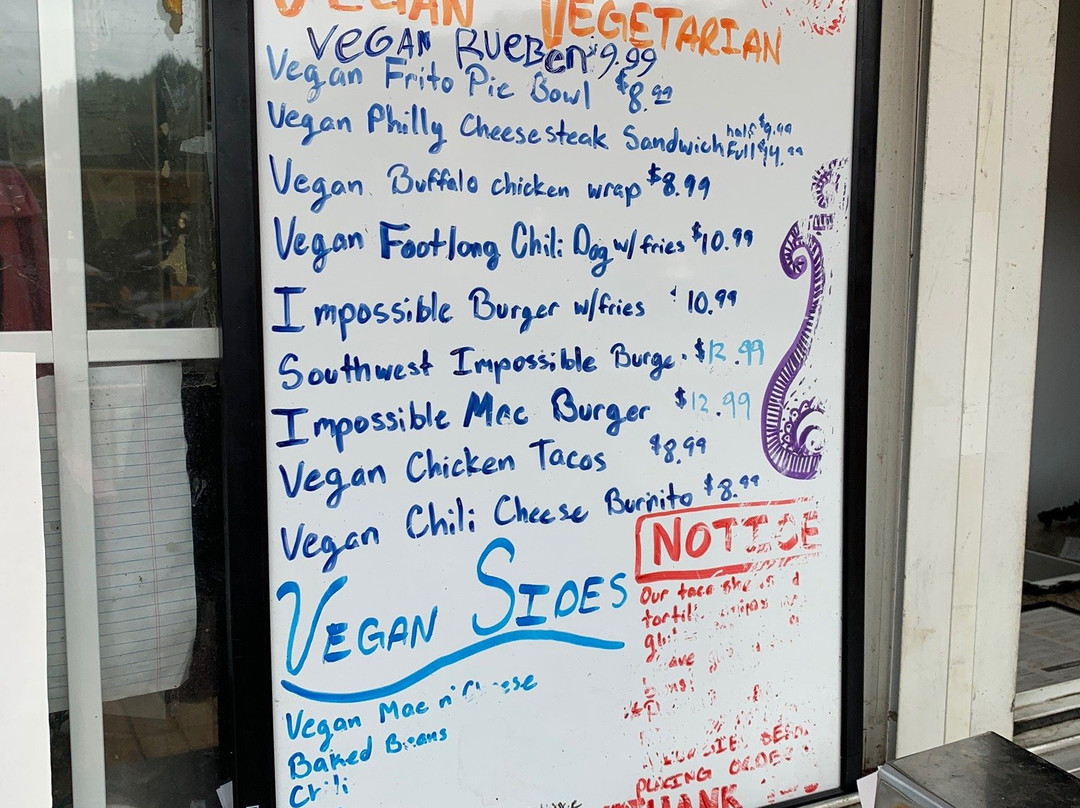 VEGAN VEGETARIAN
VEGAN RUEBEN $9.99
Vegan Frito Pie Bowl $8.99
Vegan Philly Cheesesteak Sandwich half $9.99 Full $14.99
Vegan Buffalo chicken wrap $8.99
Vegan Footlong Chili Dog w/fries $10.99
Impossible Burger w/fries $10.99
Southwest Impossible Burge $12.99
Impossible Mac Burger $12.99
Vegan Chicken Tacos $8.99
Vegan Chili Cheese Burrito $8.99
NOTICE
Our taco
VEGAN SIDES
Vegan Mac n' Cheese
Baked Beans
Chili
PLACING ORDE
THANK